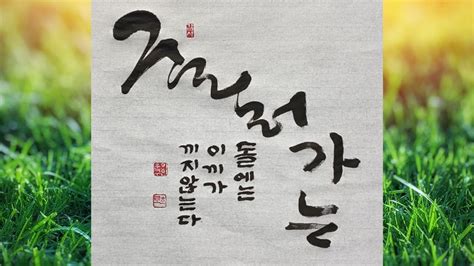 굴러가는
돌에는
이끼가
끼지않는다